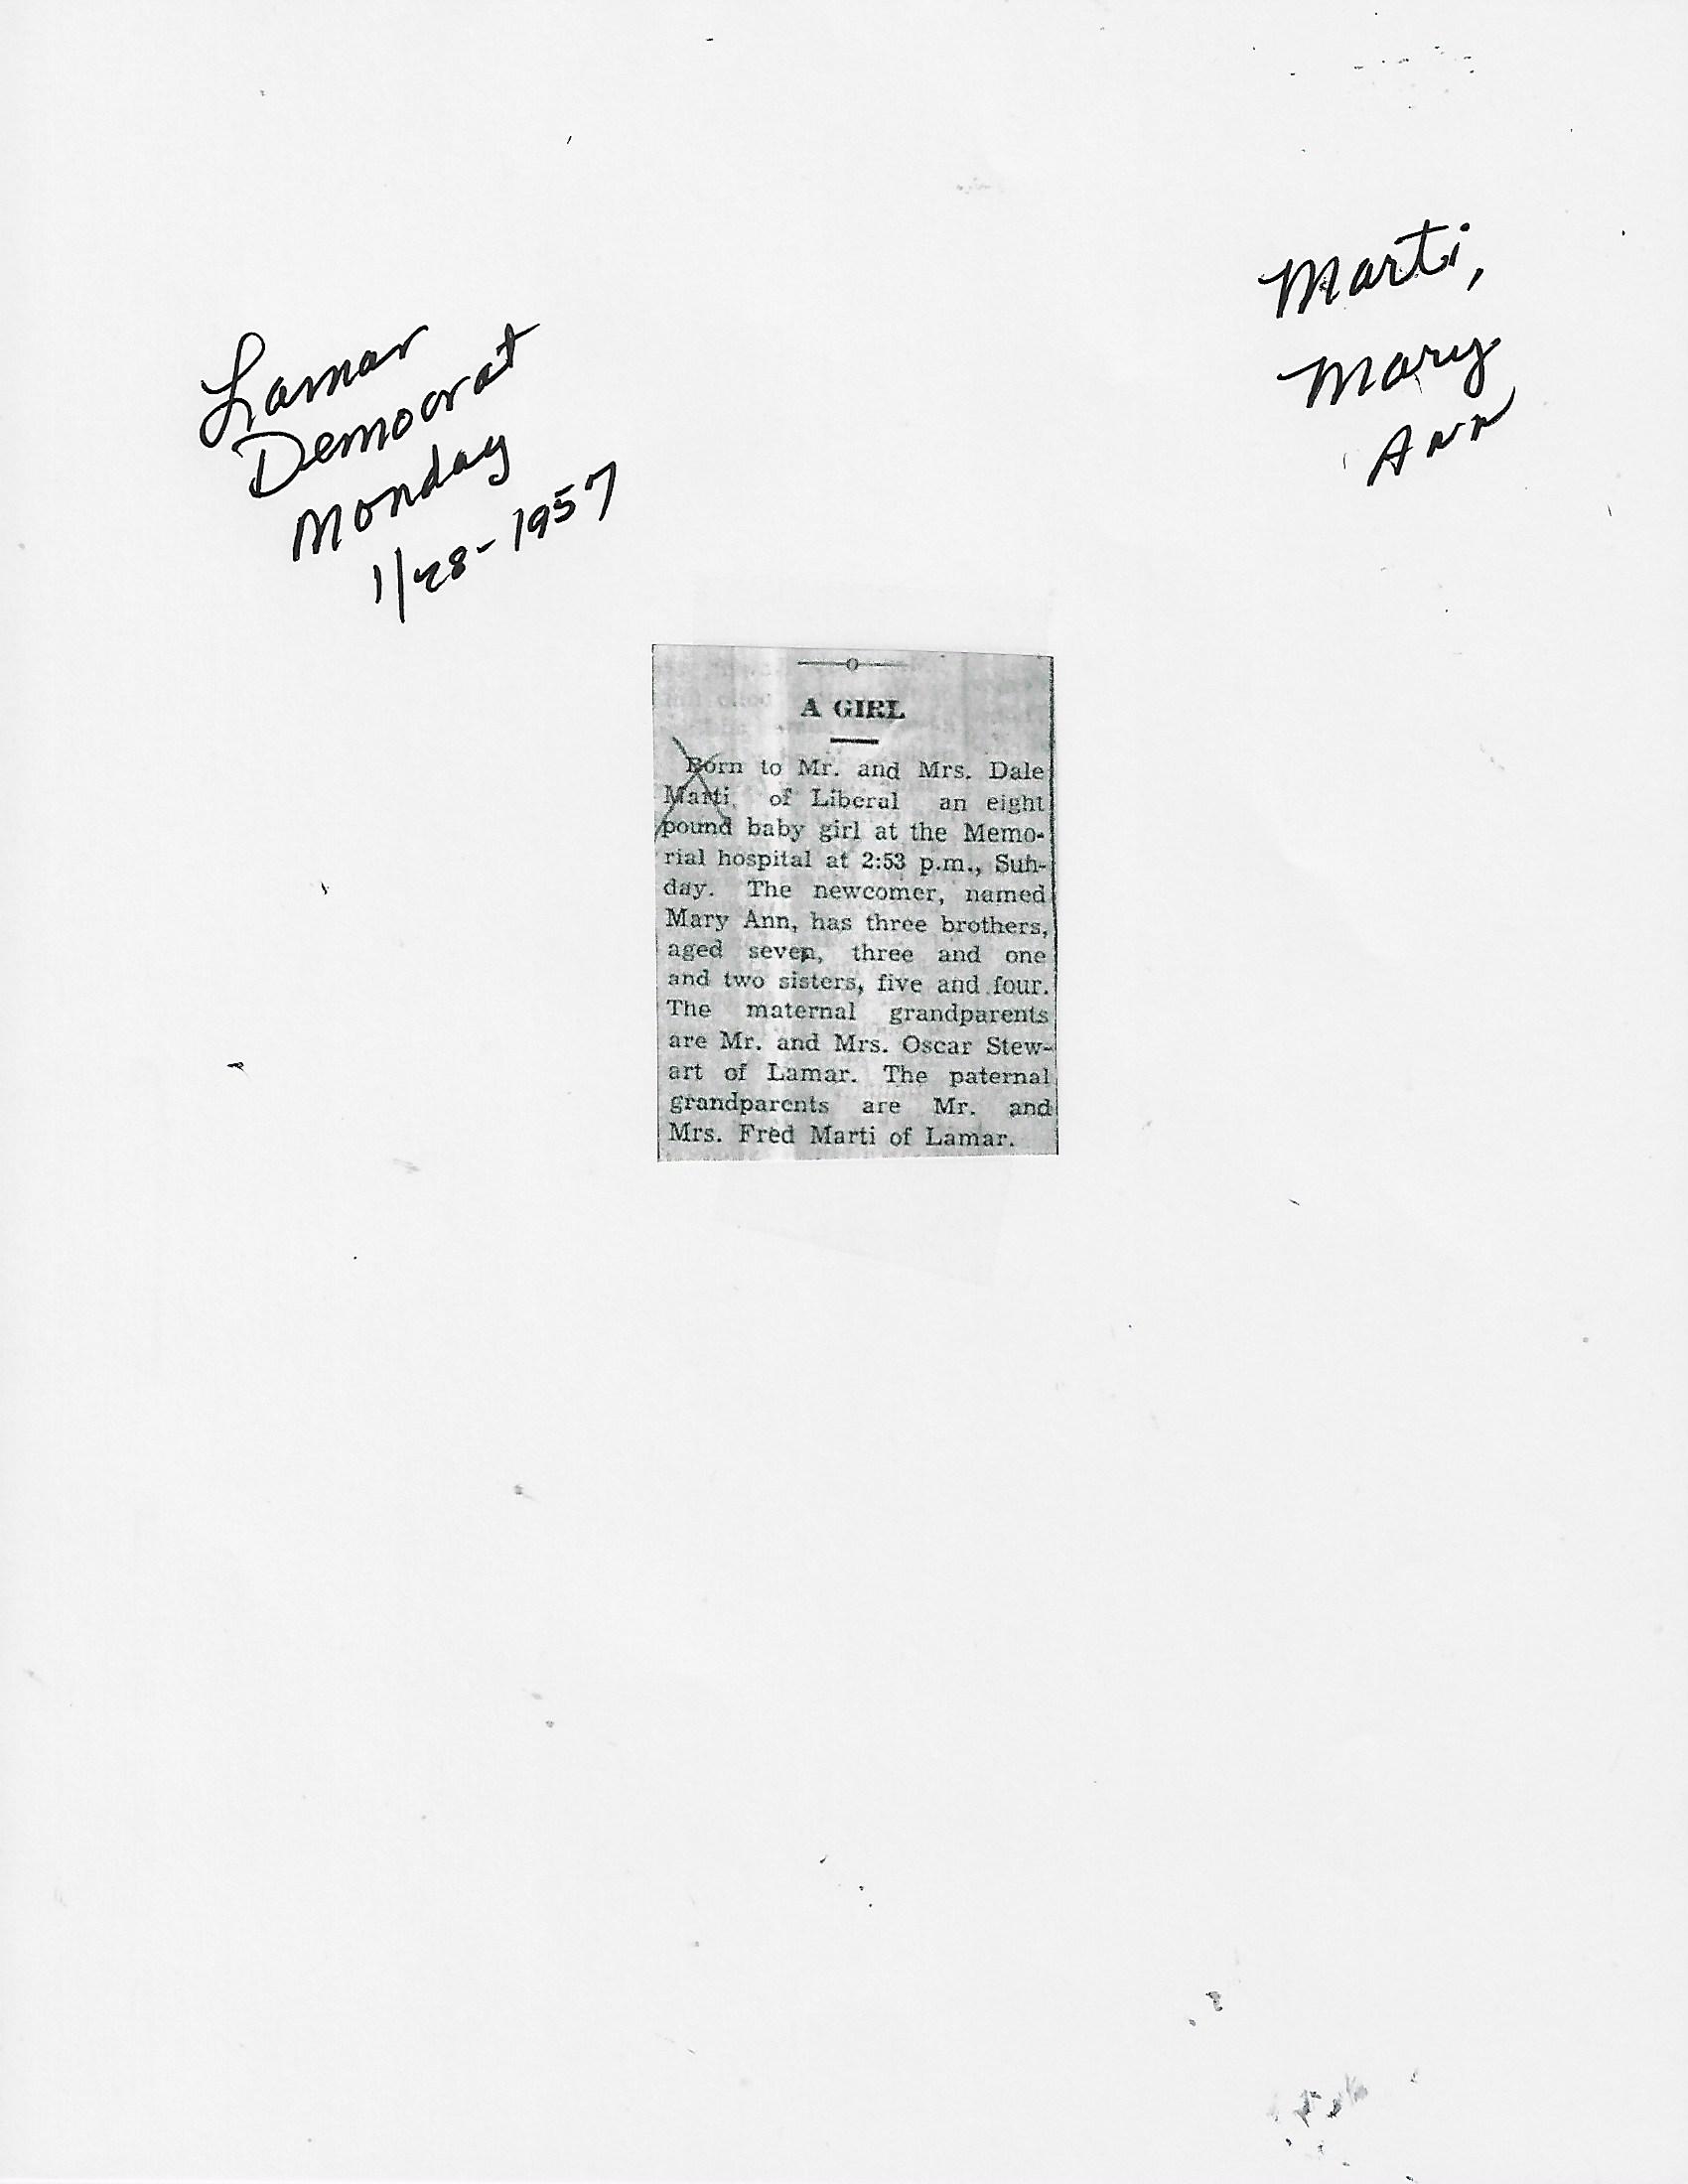 Lamar
Democrat
Monday
1/28-1957
Marti,
Mary
Ann
A GIRL
Born to Mr. and Mrs. Dale
Marti, of Liberal an eight
pound baby girl at the Memo-
rial hospital at 2:53 p.m., Sun-
day. The newcomer, named
Mary Ann, has three brothers,
aged seven, three and one
and two sisters, five and four.
The maternal grandparents
are Mr. and Mrs. Oscar Stew-
art of Lamar. The paternal
grandparents are Mr. and
Mrs. Fred Marti of Lamar.